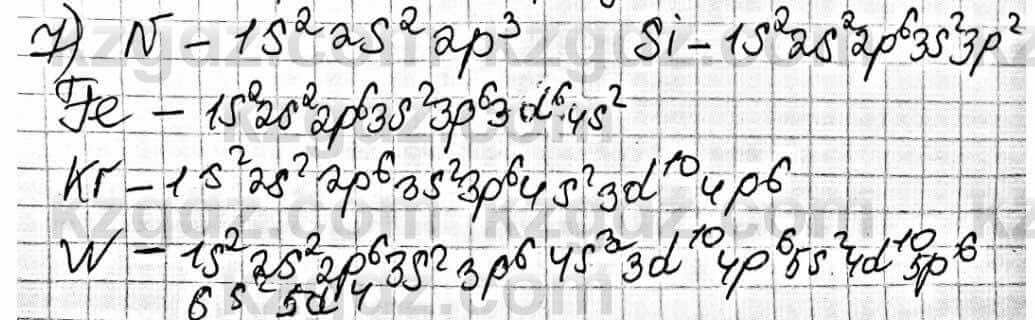 7) N – 1s²2s²2p³ Si – 1s²2s²2p⁶3s²3p²
Fe – 1s²2s²2p⁶3s²3p⁶3d⁶4s²
Kr – 1s²2s²2p⁶3s²3p⁶4s²3d¹⁰4p⁶
W – 1s²2s²2p⁶3s²3p⁶4s²3d¹⁰4p⁶5s²4d¹⁰5p⁶
6s²5d⁴
kzgdz.com